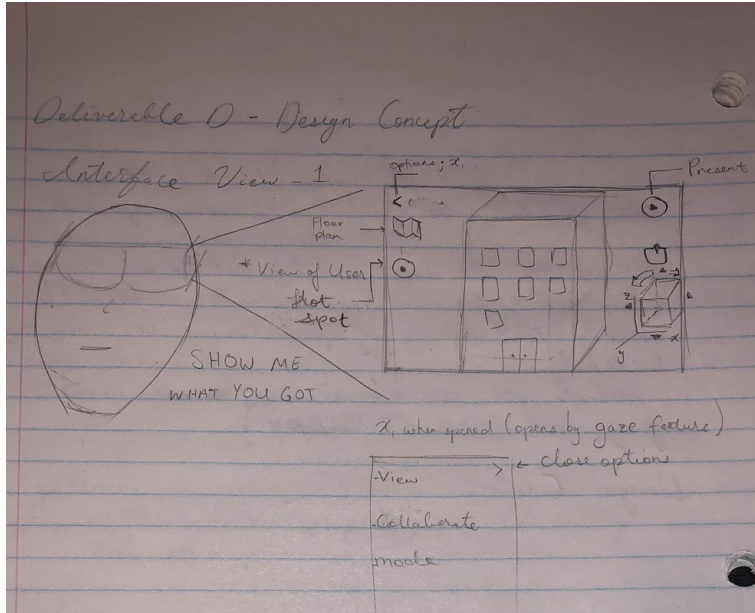 Deliverable D - Design Concept
Interface View - 1
options; x₁
Present
Floor
plan
* View of User
Hot
spot
z
x
y
SHOW ME
WHAT YOU GOT
x₁ when opened (opens by gaze feature)
> ← close option
-View
-Collaborate
mode